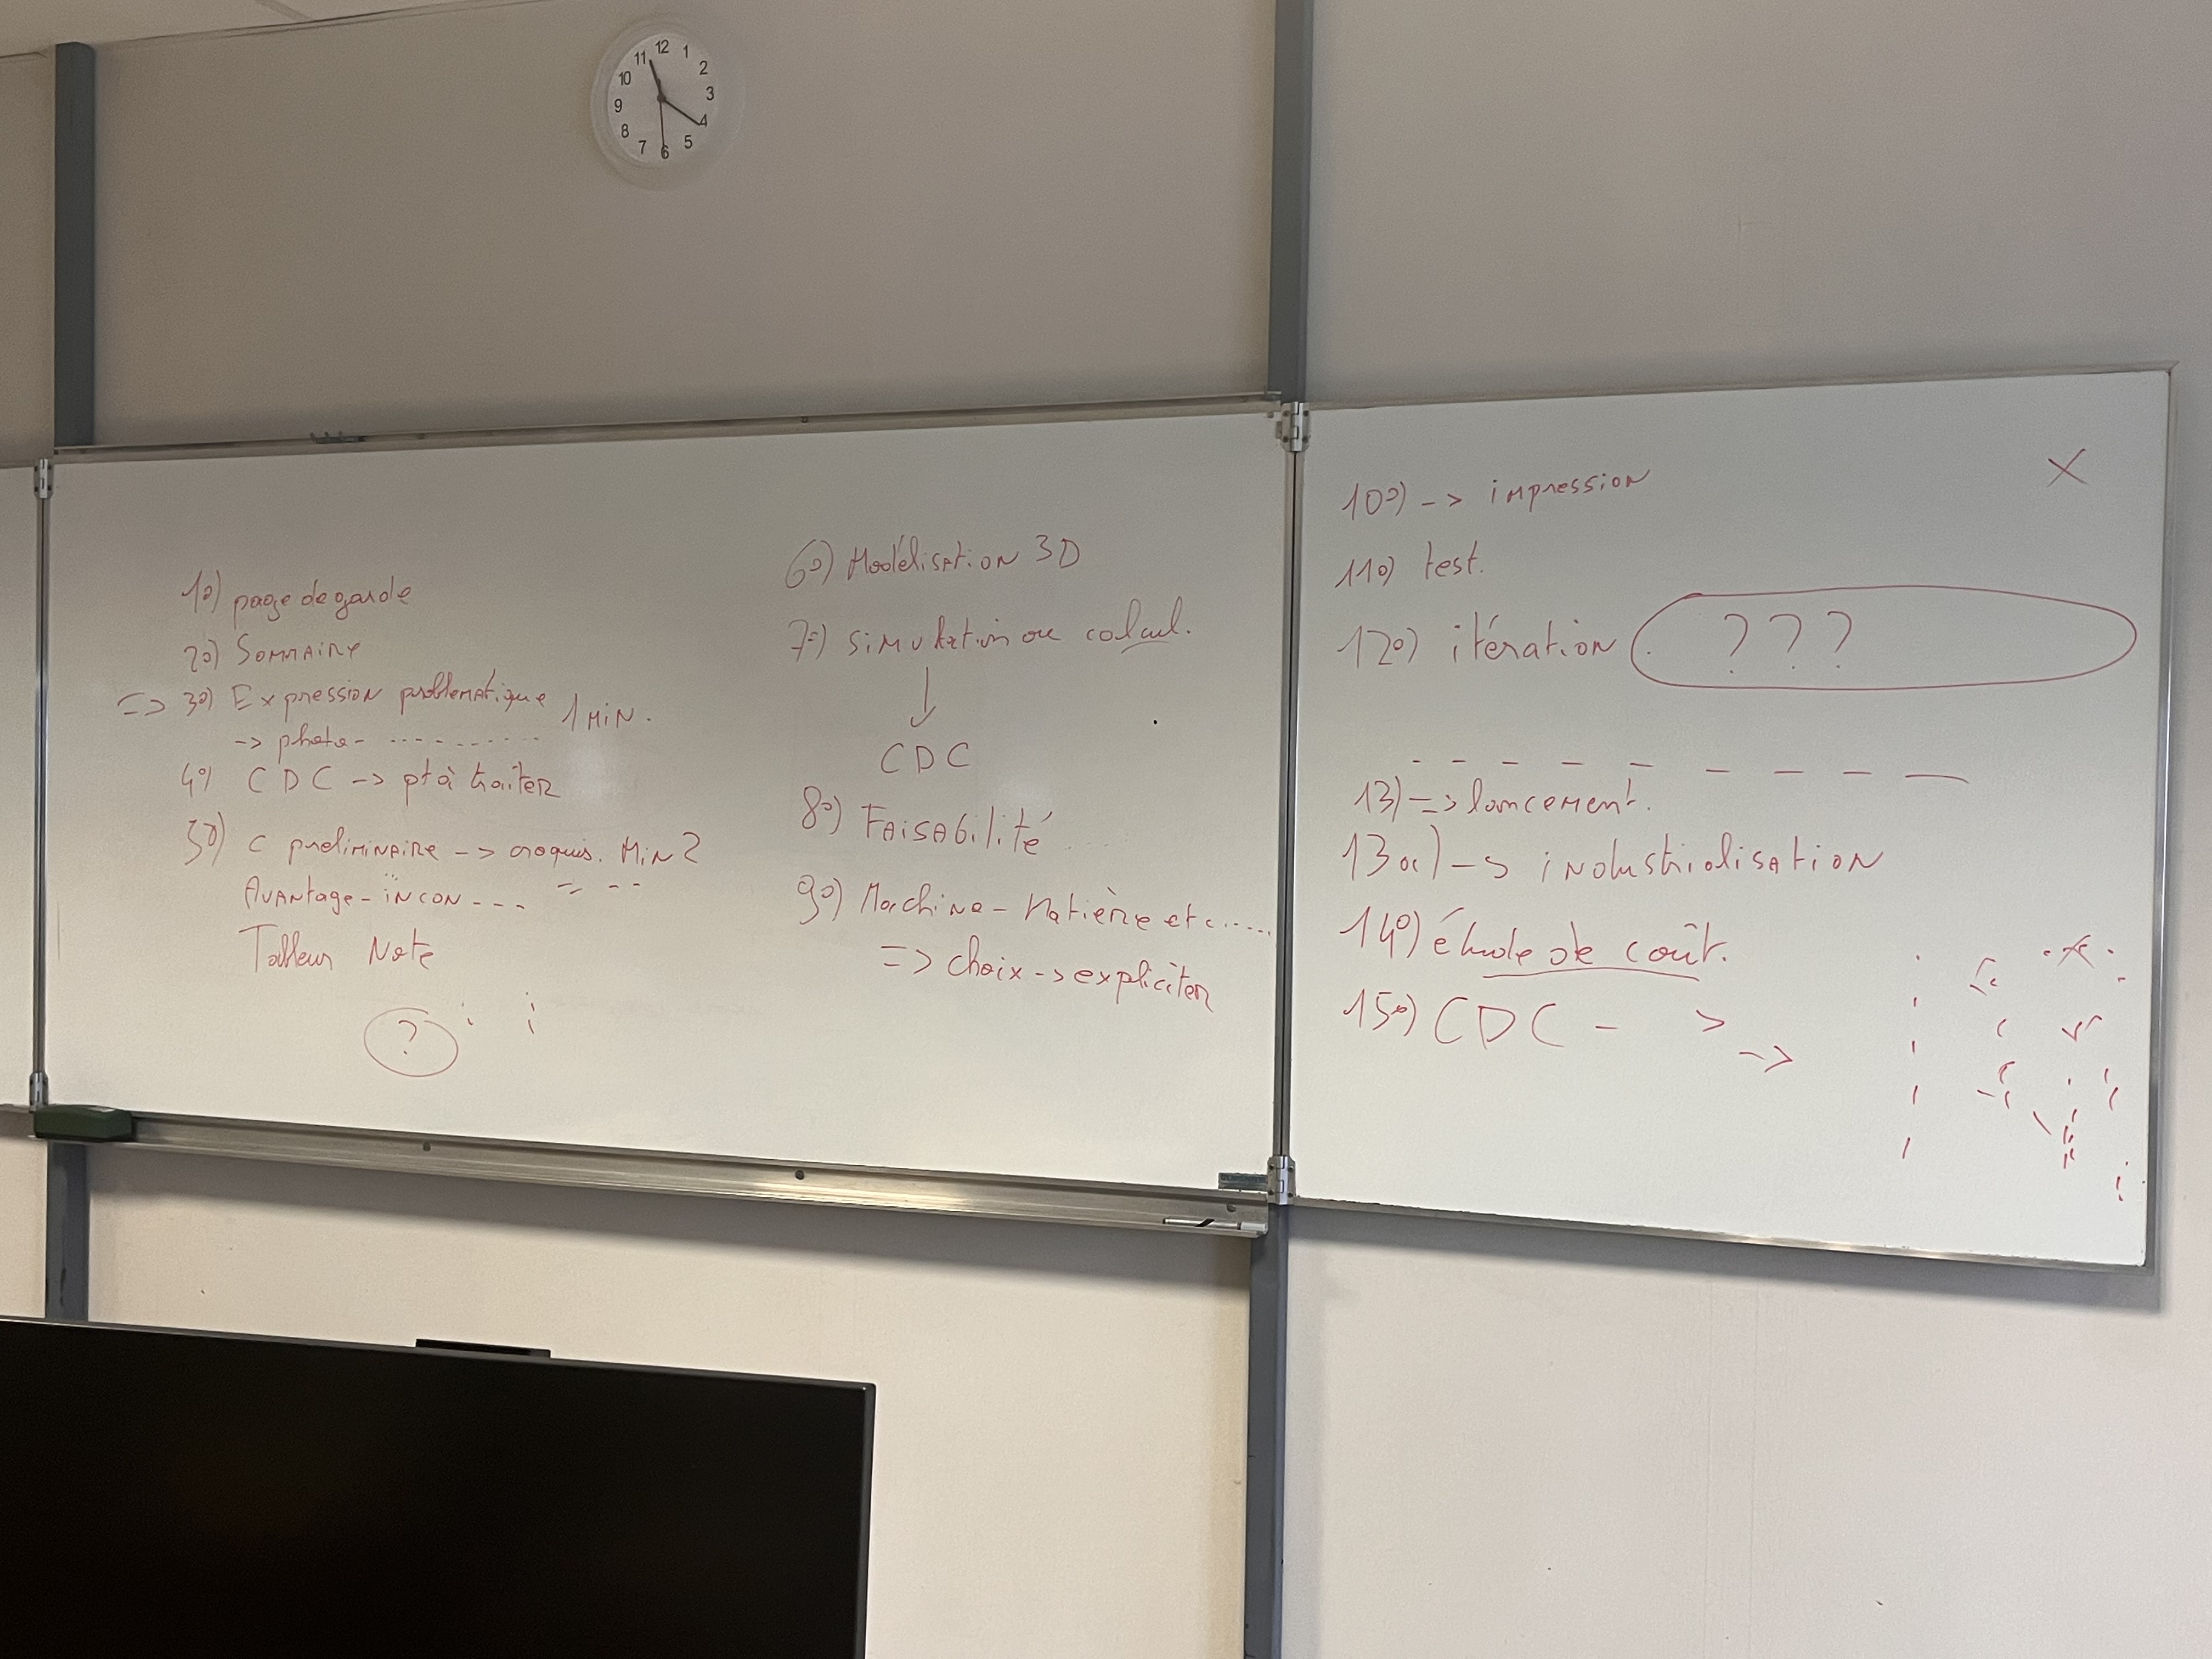 12
1
2
3
4
5
6
7
8
9
10
11
1°) page de garde
2°) Sommaire
=> 3°) Expression problématique 1 min.
-> photo - ..........
4°) CDC -> pt à traiter
5°) C préliminaire -> croquis. Min 2
Avantage - incon - - -
Tableur Note
?
6°) Modélisation 3D
7°) Simulation ou calcul.
CDC
8°) Faisabilité ....
9°) Machine - Matière etc.....
=> choix -> expliciter
10°) -> impression
X
11°) test.
12°) itération ???
13) => lancement.
13a) -> industrialisation
14°) étude de coût.
15°) CDC - >
->